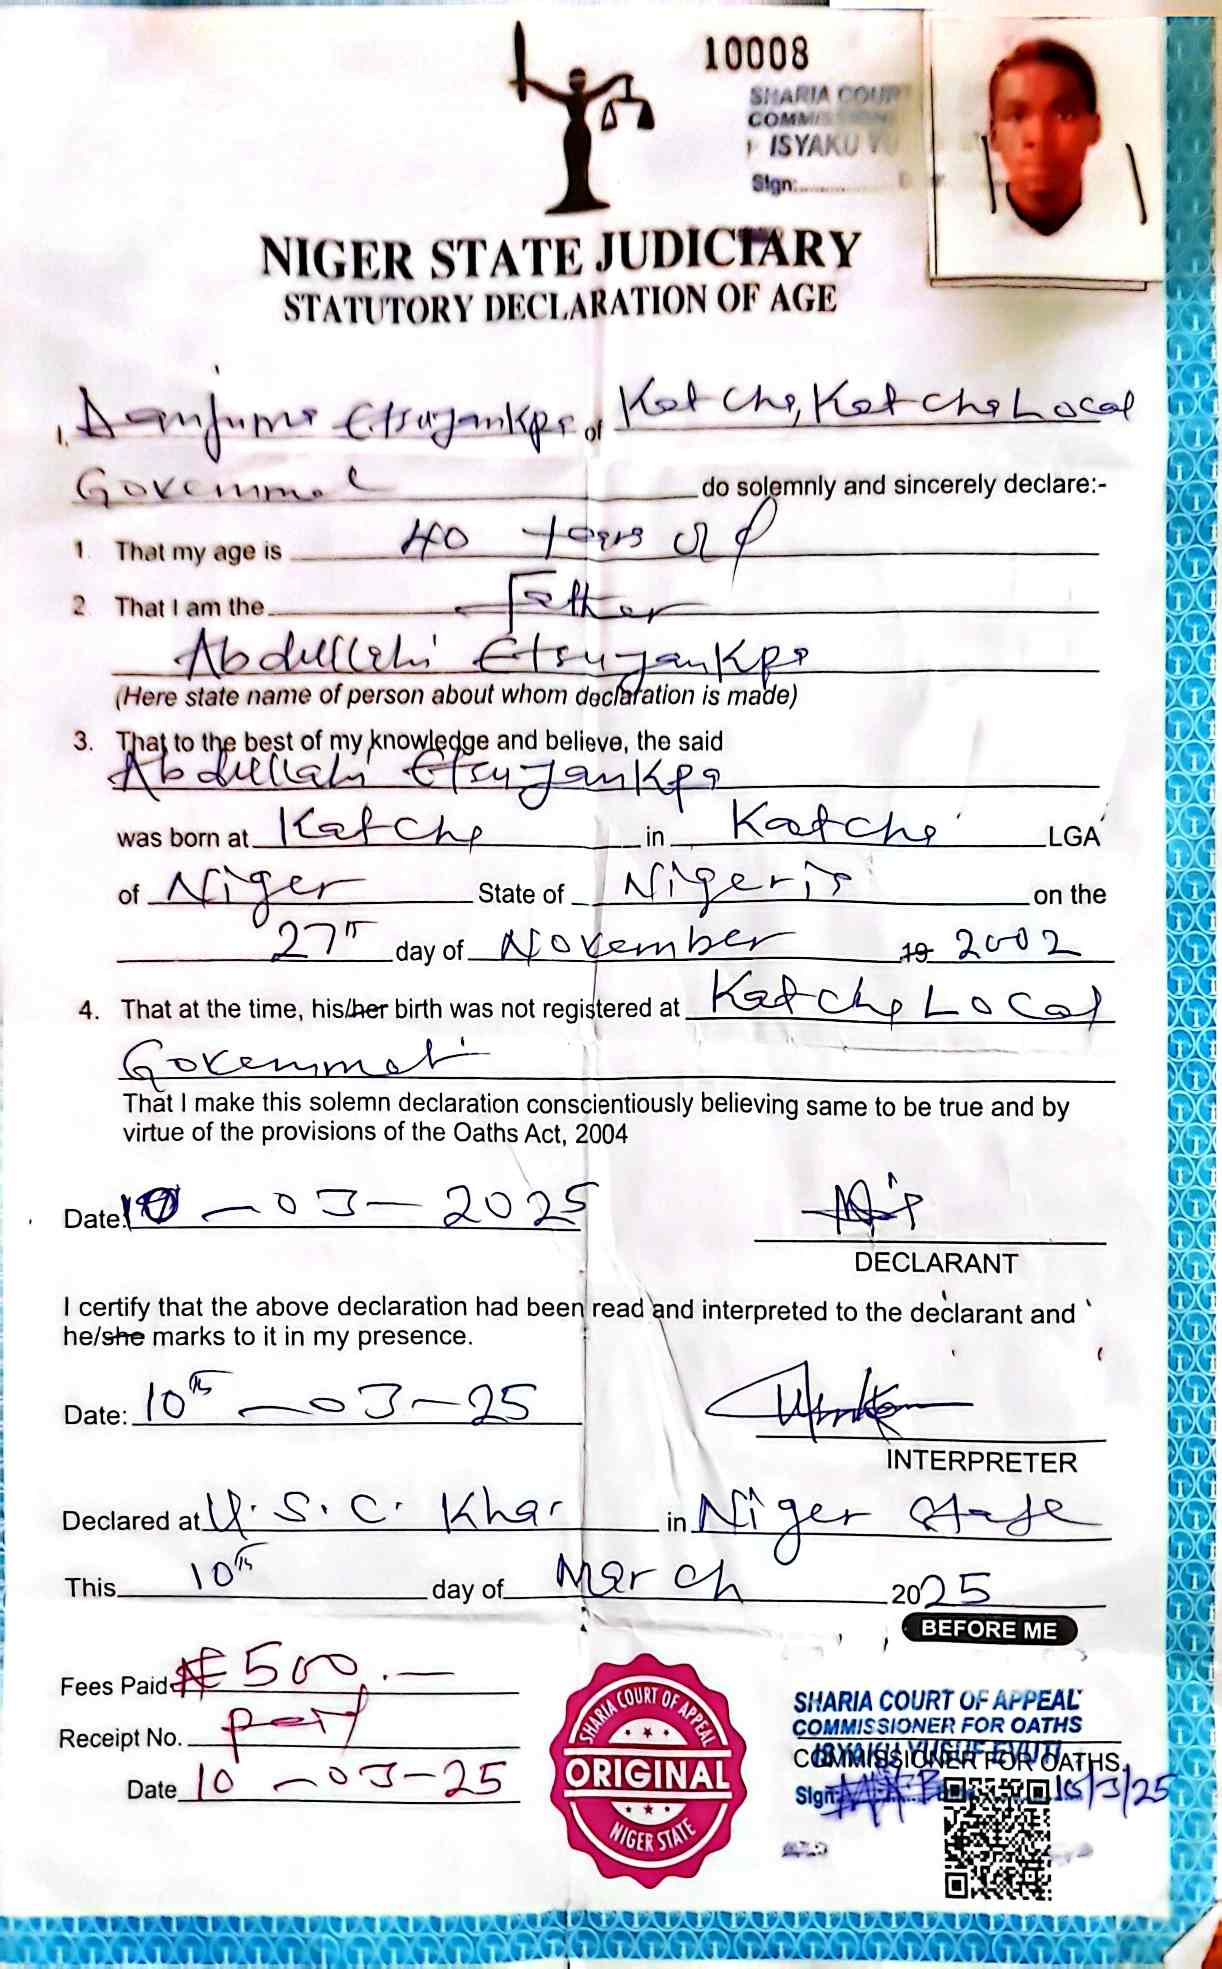 10008
SHARIA COUR
COMMISSION
ISYAKU YU
Sign:
NIGER STATE JUDICIARY
STATUTORY DECLARATION OF AGE
1. Danjuma Etsuyankpa of Katcha, Katcha Local
Government do solemnly and sincerely declare:-
1. That my age is 40 years old
2 That I am the Father
Abdullahi Etsuyankpa
(Here state name of person about whom declaration is made)
3. That to the best of my knowledge and believe, the said
Abdullahi Etsuyankpa
was born at Katcha in Katcha LGA
of Niger State of Nigeria on the
27th day of November 19 2002
4. That at the time, his/her birth was not registered at Katcha Local
Government
That I make this solemn declaration conscientiously believing same to be true and by
virtue of the provisions of the Oaths Act, 2004
Date: 10-03-2025
DECLARANT
I certify that the above declaration had been read and interpreted to the declarant and
he/she marks to it in my presence.
Date: 10th-03-25
INTERPRETER
Declared at U.S.C. Kha in Niger State
This 10th day of March 2025
BEFORE ME
Fees Paid ₦500.—
Receipt No.
Date 10-03-25
SHARIA COURT OF APPEAL
ORIGINAL
NIGER STATE
SHARIA COURT OF APPEAL
COMMISSIONER FOR OATHS
ISYAKU YUSUF EVUTI
COMMISSIONER FOR OATHS
Sign: 10/3/25